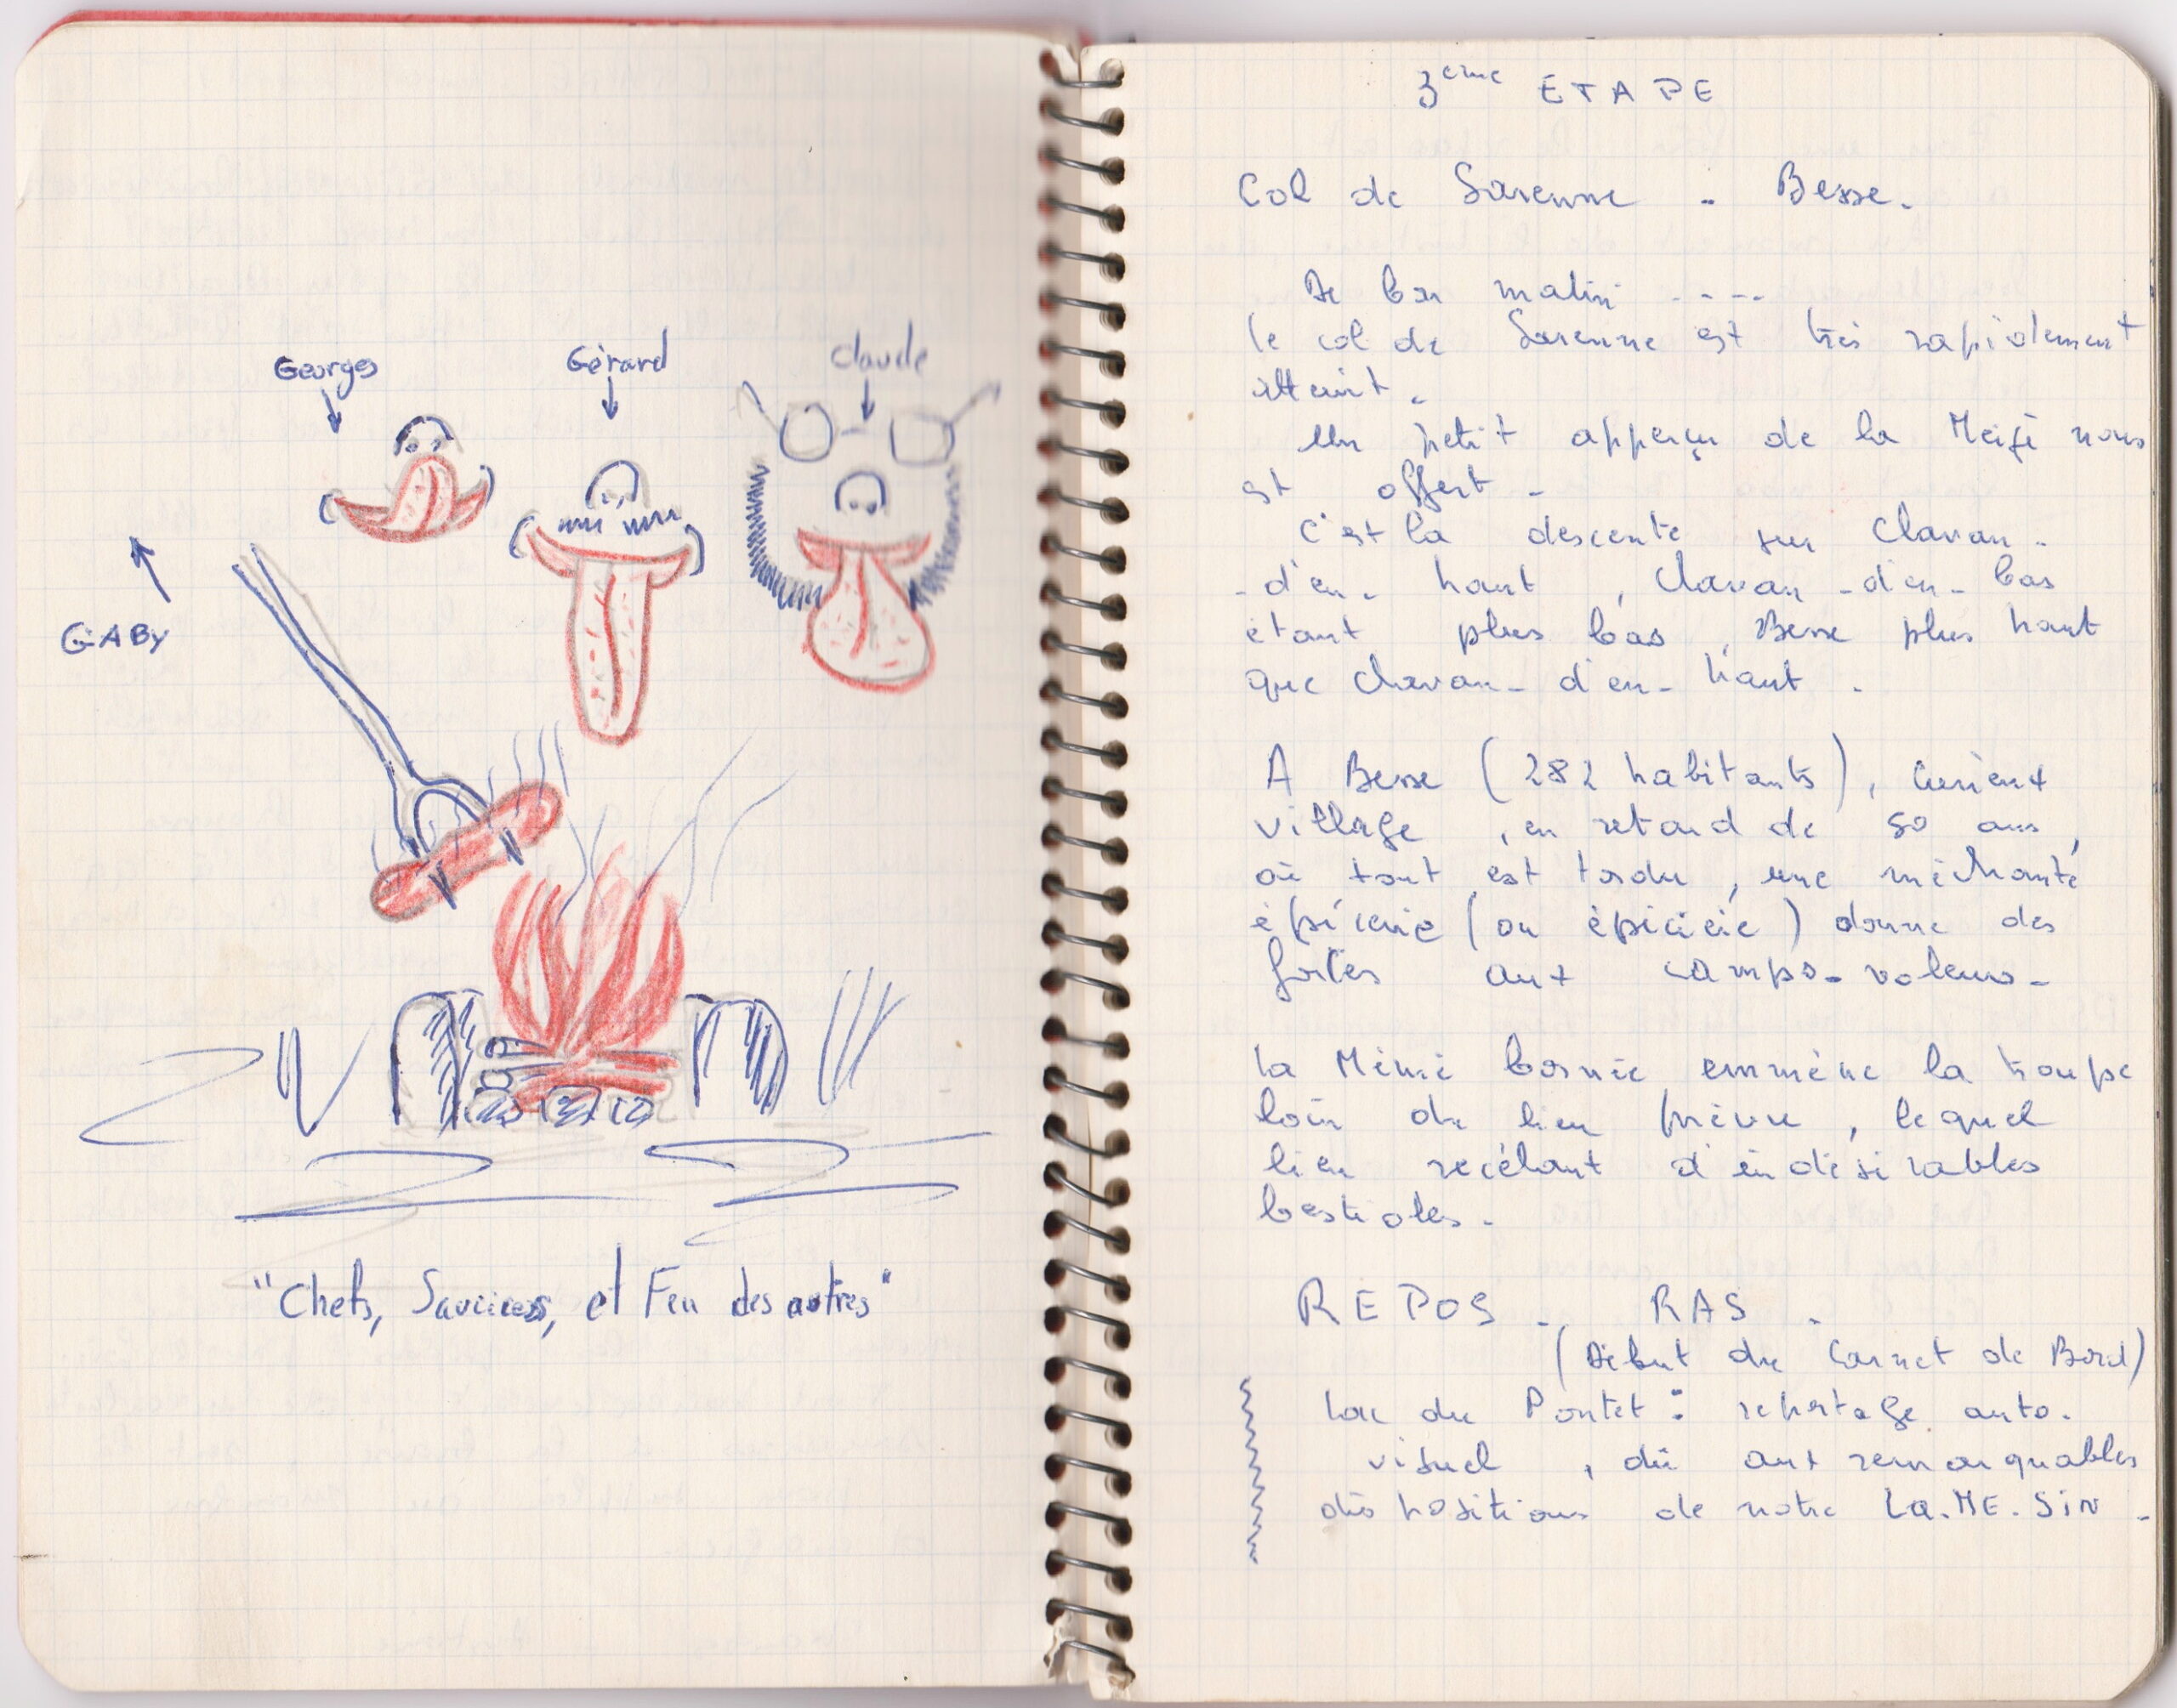 Georges
Gérard
Claude
GABY
"Chefs, Saucisses, et Feu des autres"
3ème ETAPE
Col de Sarenne - Besse.
De bon matin ----
le col de Sarenne est très rapidement
atteint.
Un petit apperçu de la Meije nous
est offert -
C'est la descente sur Clavan-
-d'en-haut, Clavan-d'en-bas
étant plus bas, Besse plus haut
que Clavan-d'en-haut.
A Besse (282 habitants), curieux
village, en retard de 50 ans,
où tout est tordu, une méchante
épicerie (ou épicière) donne des
aux campo-voleurs-
la Mémé bornée emmène la troupe
loin du lieu prévu, lequel
lieu recélant d'indésirables
bestioles-
REPOS - RAS.
(Début du Carnet de Bord)
Lac du Pontet: reportage auto-
visuel, dû aux remarquables
dispositions de notre La.ME.SIN-